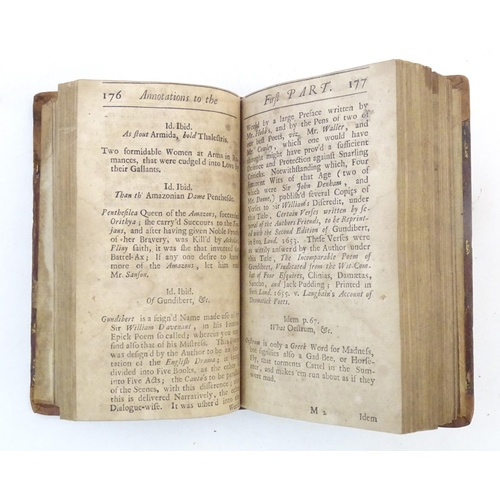 176 Annotations to the
Id. Ibid.
As stout Armida, bold Thalestris.
Two formidable Women at Arms in Ro-
mances, that were cudgel'd into Love by
their Gallants.
Id. Ibid.
Than th' Amazonian Dame Penthesile.
Penthesilea Queen of the Amazons, succeeded
Orithya; she carry'd Succours to the Tro-
jans, and after having given Noble Proofs
of her Bravery, was Kill'd by Achilles.
Pliny saith, it was she that invented the
Battel-Ax; If any one desire to know
more of the Amazons, let him read
Mr. Sanson.
Id. Ibid.
Of Gundibert, &c.
Gundibert is a feign'd Name made use of by
Sir William Davenant, in his Famous
Epick Poem so called; wherein you may
find also that of his Mistress. This
was design'd by the Author to be
of the English Drama; it
divided into Five Books, as the other
into Five Acts; the Canto's to be
of the Scenes, with this difference,
this is deliver'd Narratively, the
Dialogue-wise. It was usher'd into
First PART. 177
World by a large Preface written by
Mr. Hobbs, and by the Pens of two of
our best Poets, viz. Mr. Waller, and
Mr. Cowley, which one would have
thought might have prov'd a sufficient
Defence and Protection against Snarling
Criticks. Notwithstanding which, Four
Eminent Wits of that Age (two of
which were Sir John Denham, and
Mr. Donne,) publish'd several Copies of
Verses to Sir William's Discredit, under
this Title, Certain Verses written by se-
veral of the Authors Friends, to be Reprint-
ed with the Second Edition of Gundibert,
in 8vo, Lond. 1653. These Verses were
as wittily answer'd by the Author under
this Title, The Incomparable Poem of
Gundibert, Vindicated from the Wit-Com-
bat of Four Esquires, Clinias, Damætas,
Sancho, and Jack-Pudding; Printed in
8vo Lond. 1655. v. Langbain's Account of
Dramatick Poets.
Idem p. 67.
What Oestrum, &c.
Oestrum is only a Greek Word for Madness,
and signifies also a Gad Bee, or Horse-
fly, that torments Cattel in the Sum-
mer, and makes 'em run about as if they
were mad.
M 2 Idem